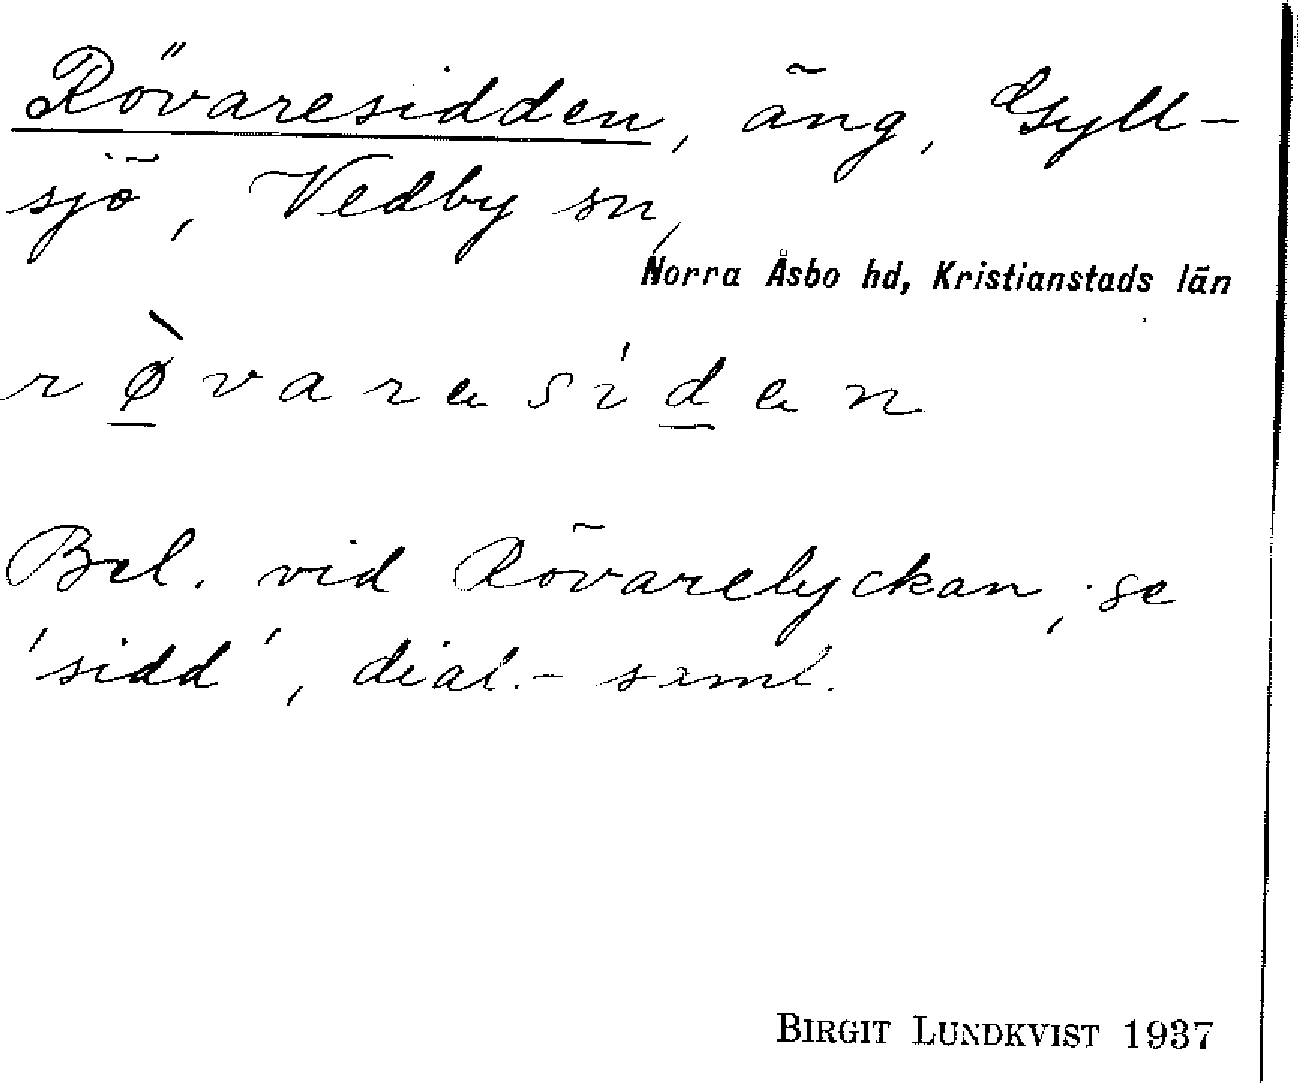 Rövaresidden, äng, Gyll-
sjö, Vedby sn,
Norra Åsbo hd, Kristianstads län
r ø̀ v a r e s i' d e n
Bel. vid Rövarelyckan, se
'sidd', dial.- saml.
BIRGIT LUNDKVIST 1937